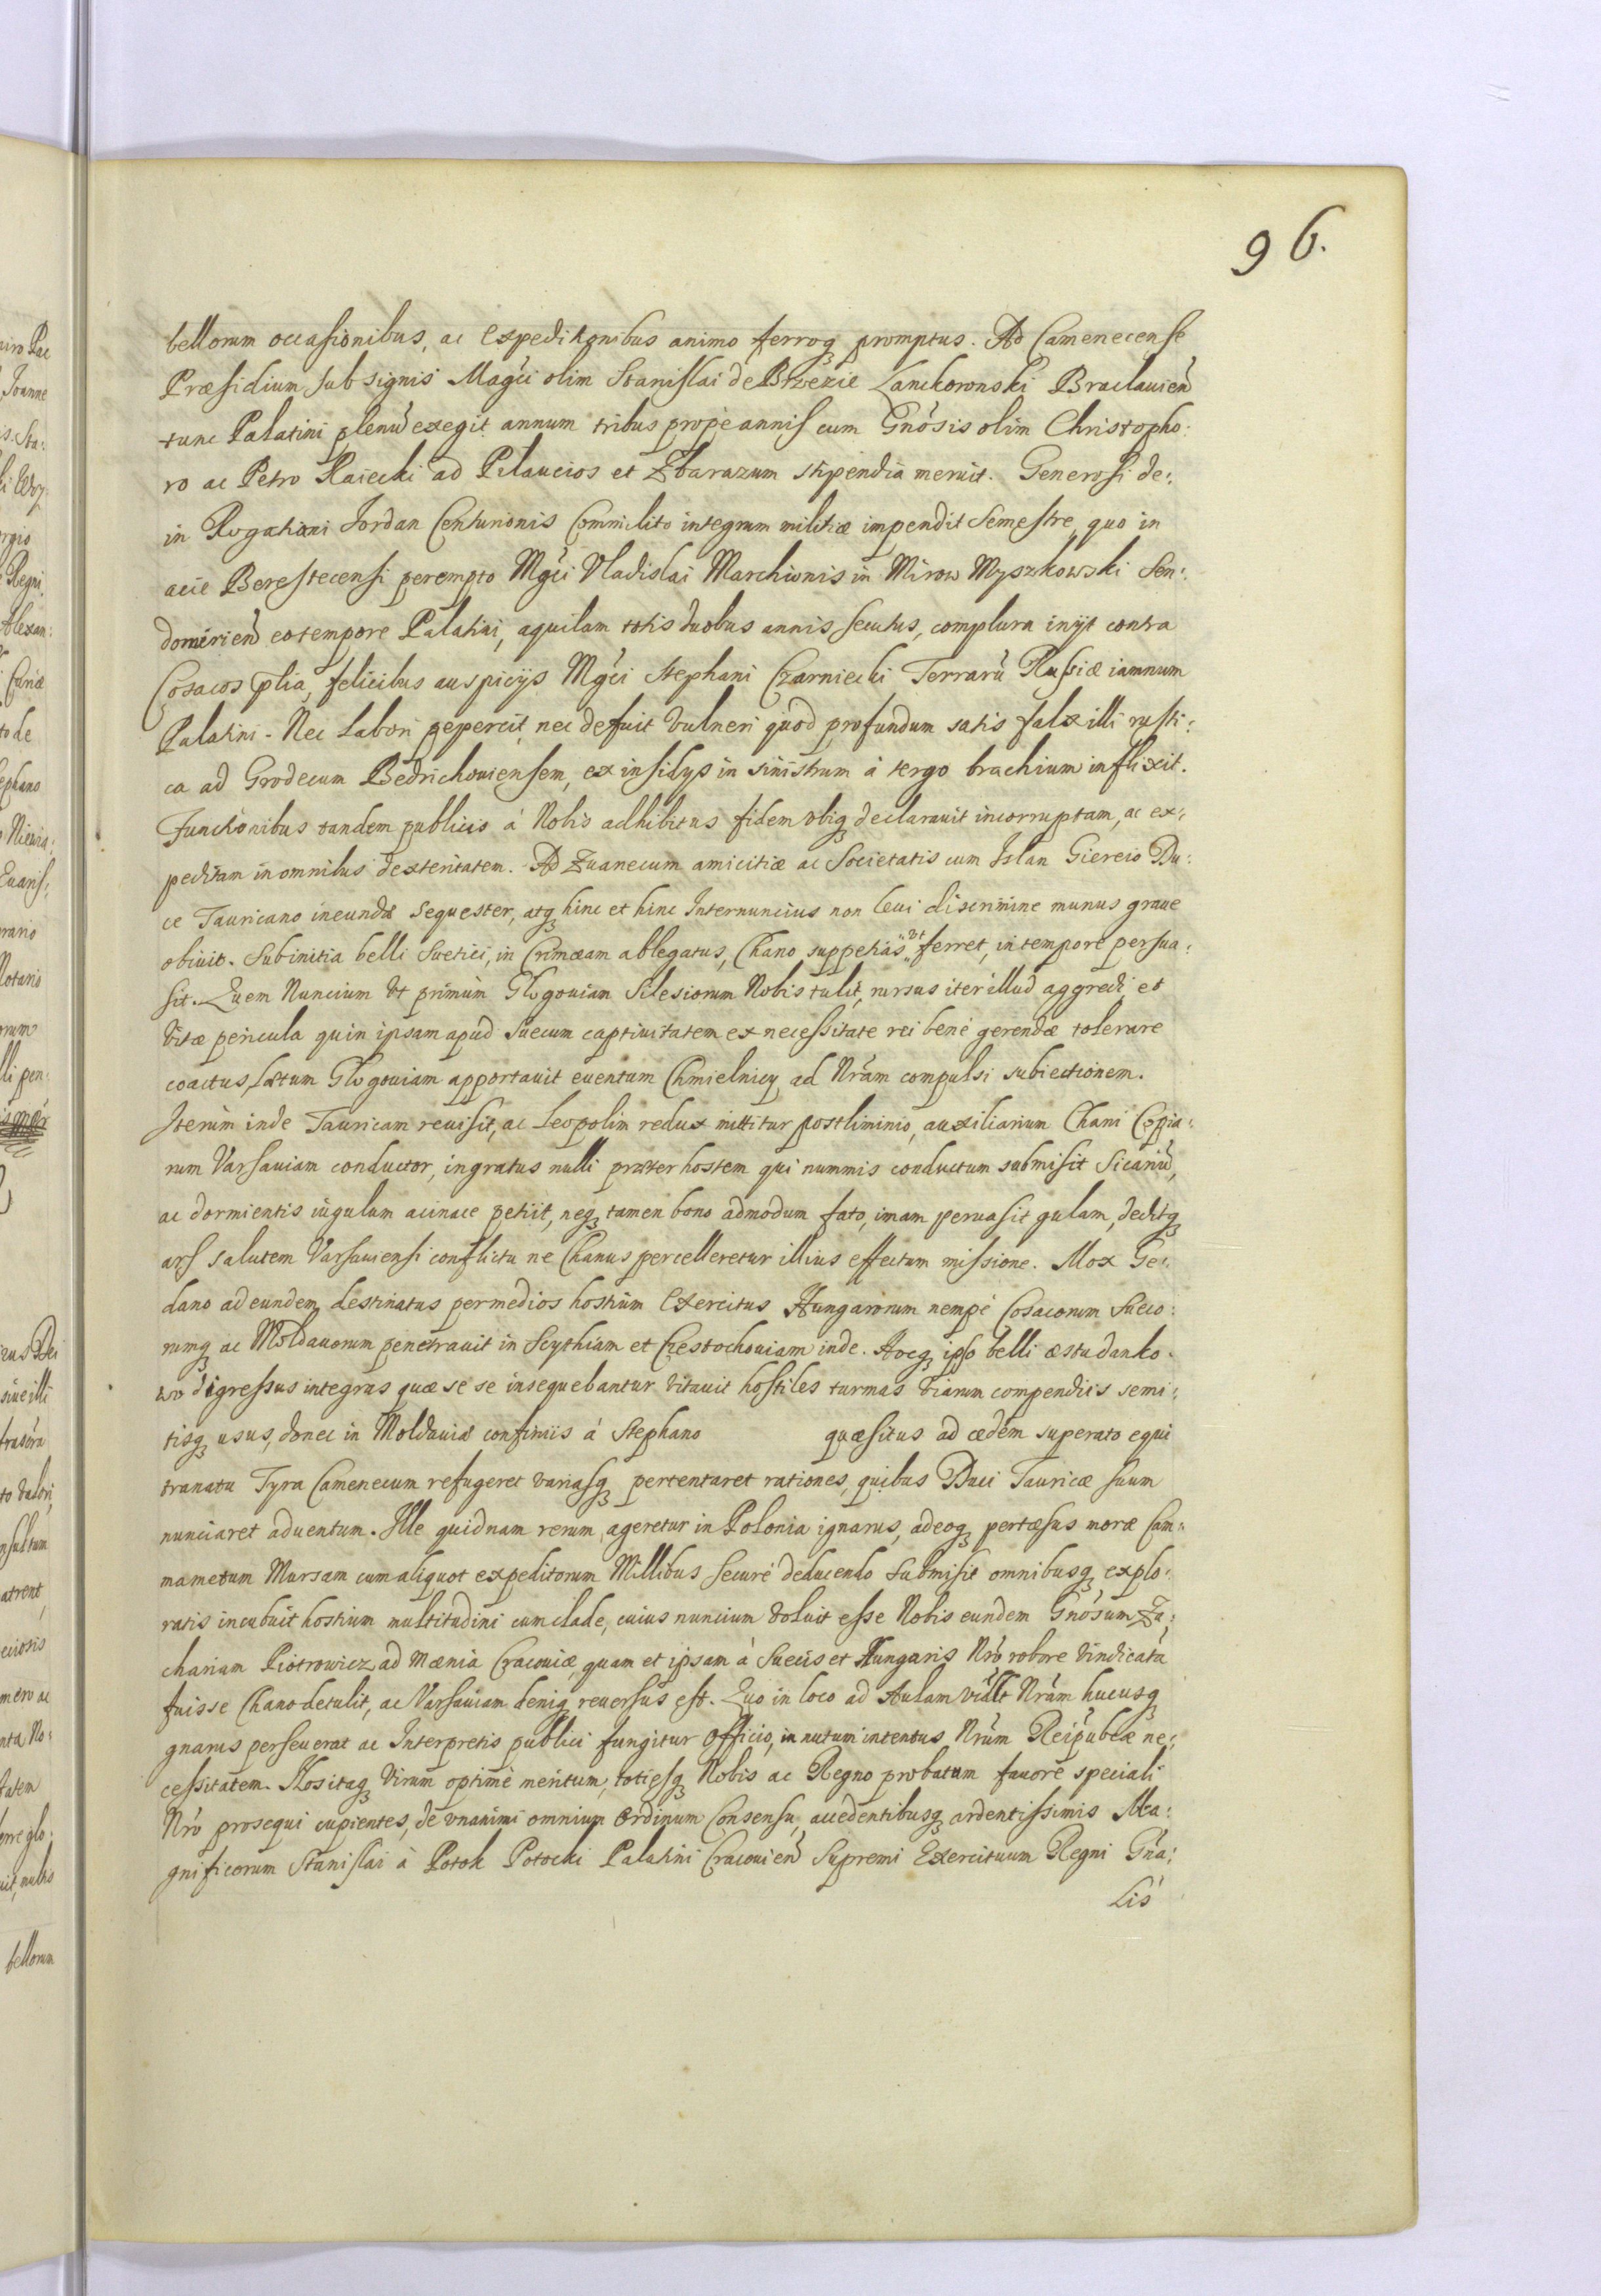 96.
bellorum occasionibus, ac Expeditionibus animo ferroq promptus. Ad Camenecense
Præsidium sub signis Mag̃ci olim Stanislai de Brzezie Lanckoronski Braclauien̄
tunc Palatini plenū exegit annum tribus propè annis cum Gnōsis olim Christopho:
ro ac Petro Raiecki ad Pilaucios et Zbarazum stipendia meruit. Generosi de:
in Rogationi Jordan Centurionis Commilito integrum militiæ impendit Semestre, quo in
acie Berestecensi perempto Mg̃ci Vladislai Marchionis in Mirow Myszkowski Sen:
domirien̄ eo tempore Palatini, aquilam totis duobus annis secutus, complura inijt contra
Cosacos p̄lia, felicibus auspicijs Mg̃ci Stephani Czarniecki Terrarū Russiæ iamnum
Palatini. Nec Labori pepercit, nec defuit vulneri quod profundum satis falx illi rusti:
ca ad Grodecum Bedrichouiensem, ex insidijs in sinistrum à tergo brachium inflixit.
Functionibus tandem publicis à Nobis adhibitus fidem vbiq declarauit incorruptam, ac ex:
peditam in omnibus dexteritatem. Ad Zuanecum amicitiæ ac Societatis cum Islan Giereio Du:
ce Tauricano ineundæ Sequester, atq hinc et hinc Internuncius non leui discrimine munus graue
obiuit. Sub initia belli Suetici, in Crimæam ablegatus, Chano suppetias vt ferret, in tempore persua:
sit. Quem Nuncium vt primùm Glogouiam Silesiorum Nobis tulit, rursus iter illud aggredi et
vitæ pericula quin ipsam apud Suecum captiuitatem ex necessitate rei benè gerendæ tolerare
coactus, lætum Glogouiam apportauit euentum Chmielnicij ad Nr̃am compulsi subiectionem.
Iterùm inde Tauricam reuisit, ac Leopolim redux mittitur postliminio, auxiliarium Chani Copia:
rum Varsauiam conductor, ingratus nulli præter hostem qui nummis conductum submisit Sicariū,
ac dormientis iugulum acinace petijt, neq tamen bono admodum fato, imam peruasit gulam, deditq
ars salutem Varsauiensi conflictu ne Chanus percelleretur illius effectum missione. Mox Ge:
dano ad eundem destinatus per medios hostium Exercitus Hungarorum nempè Cosacorum Sueco:
rumq ac Moldauorum penetrauit in Scythiam et Czestochouiam inde. Hocq ipso belli æstu danko:
wo digressus integras quæ se se insequebantur vitauit hostiles turmas viarum compendiis semi:
tisq usus, donec in Moldauiæ confiniis à Stephano quæsitus ad cædem superato equi
tranatu Tyra Camenecum refugeret variasq pertentaret rationes, quibus Duci Tauricæ suum
nunciaret aduentum. Ille quidnam rerum ageretur in Polonia ignarus, adeoq pertæsus moræ Cam:
mametum Mursam cum aliquot expeditorum Millibus securè deducendo submisit omnibusq explo:
ratis incubuit hostium multitudini cum clade, cuius nuncium voluit esse Nobis eundem Gnōsum Za:
chariam Piotrowicz ad mænia Cracouiæ, quam et ipsam à Suecis et Hungaris Nr̃o robore vindicatā
fuisse Chano detulit, ac Varsauiam deniq reuersus est. Quo in loco ad Aulam Nr̃am hucusq
gnarus perseuerat ac Interpretis publici fungitur Officio, in nutum intentus Nr̃um Reipub̃cæ ne:
cessitatem. Nos itaq virum optimè meritum, totiesq Nobis ac Regno probatum fauore speciali
Nr̃o prosequi cupientes, de vnanimi omnium Ordinum Consensu, accedentibusq ardentissimis Ma:
gnificorum Stanislai à Potok Potocki Palatini Cracouien̄ Supremi Exercituum Regni Gn̄a:
lis